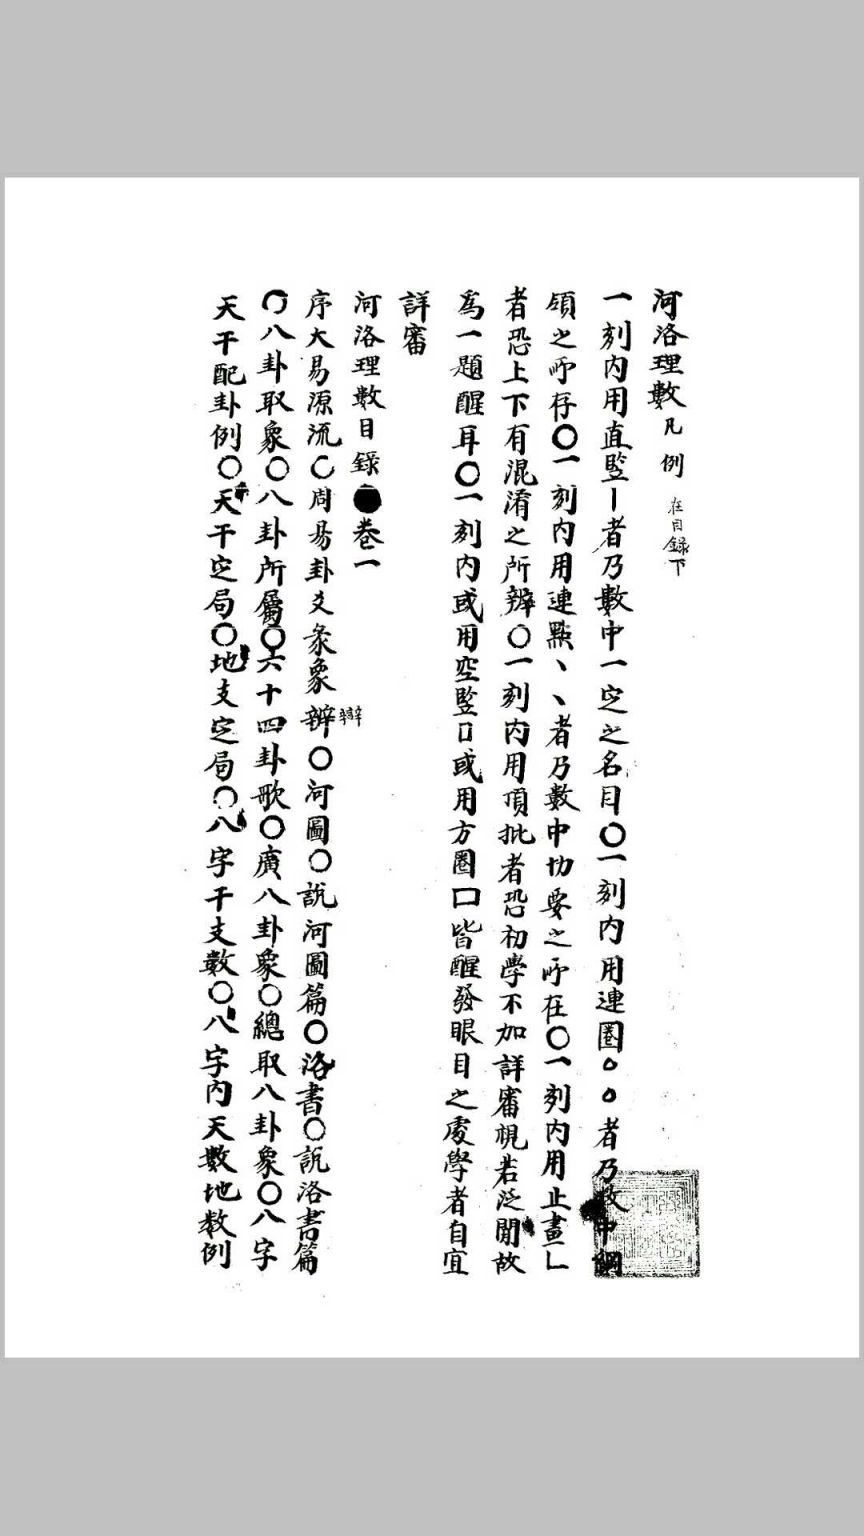 河洛理數凡例 在目録下
一刻内用直竪丨者乃數中一定之名目〇一刻内用連圈○○者乃数中綱
領之所存〇一刻内用連㸃丶丶者乃數中切要之所在〇一刻内用止畫乚
者恐上下有混淆之所辨〇一刻内用頂批者恐初學不加詳審視若泛閒故
爲一題醒耳〇一刻内或用空竪口或用方圈口皆醒發眼目之處學者自宜
詳審
河洛理數目録●卷一
序大易源流〇周易卦爻彖象辨辯〇河圖〇説河圖篇〇洛書〇説洛書篇
〇八卦取象〇八卦所屬〇六十四卦歌〇廣八卦象〇總取八卦象〇八字
天干配卦例〇天干定局〇地支定局〇八字干支數〇八字内天數地数例